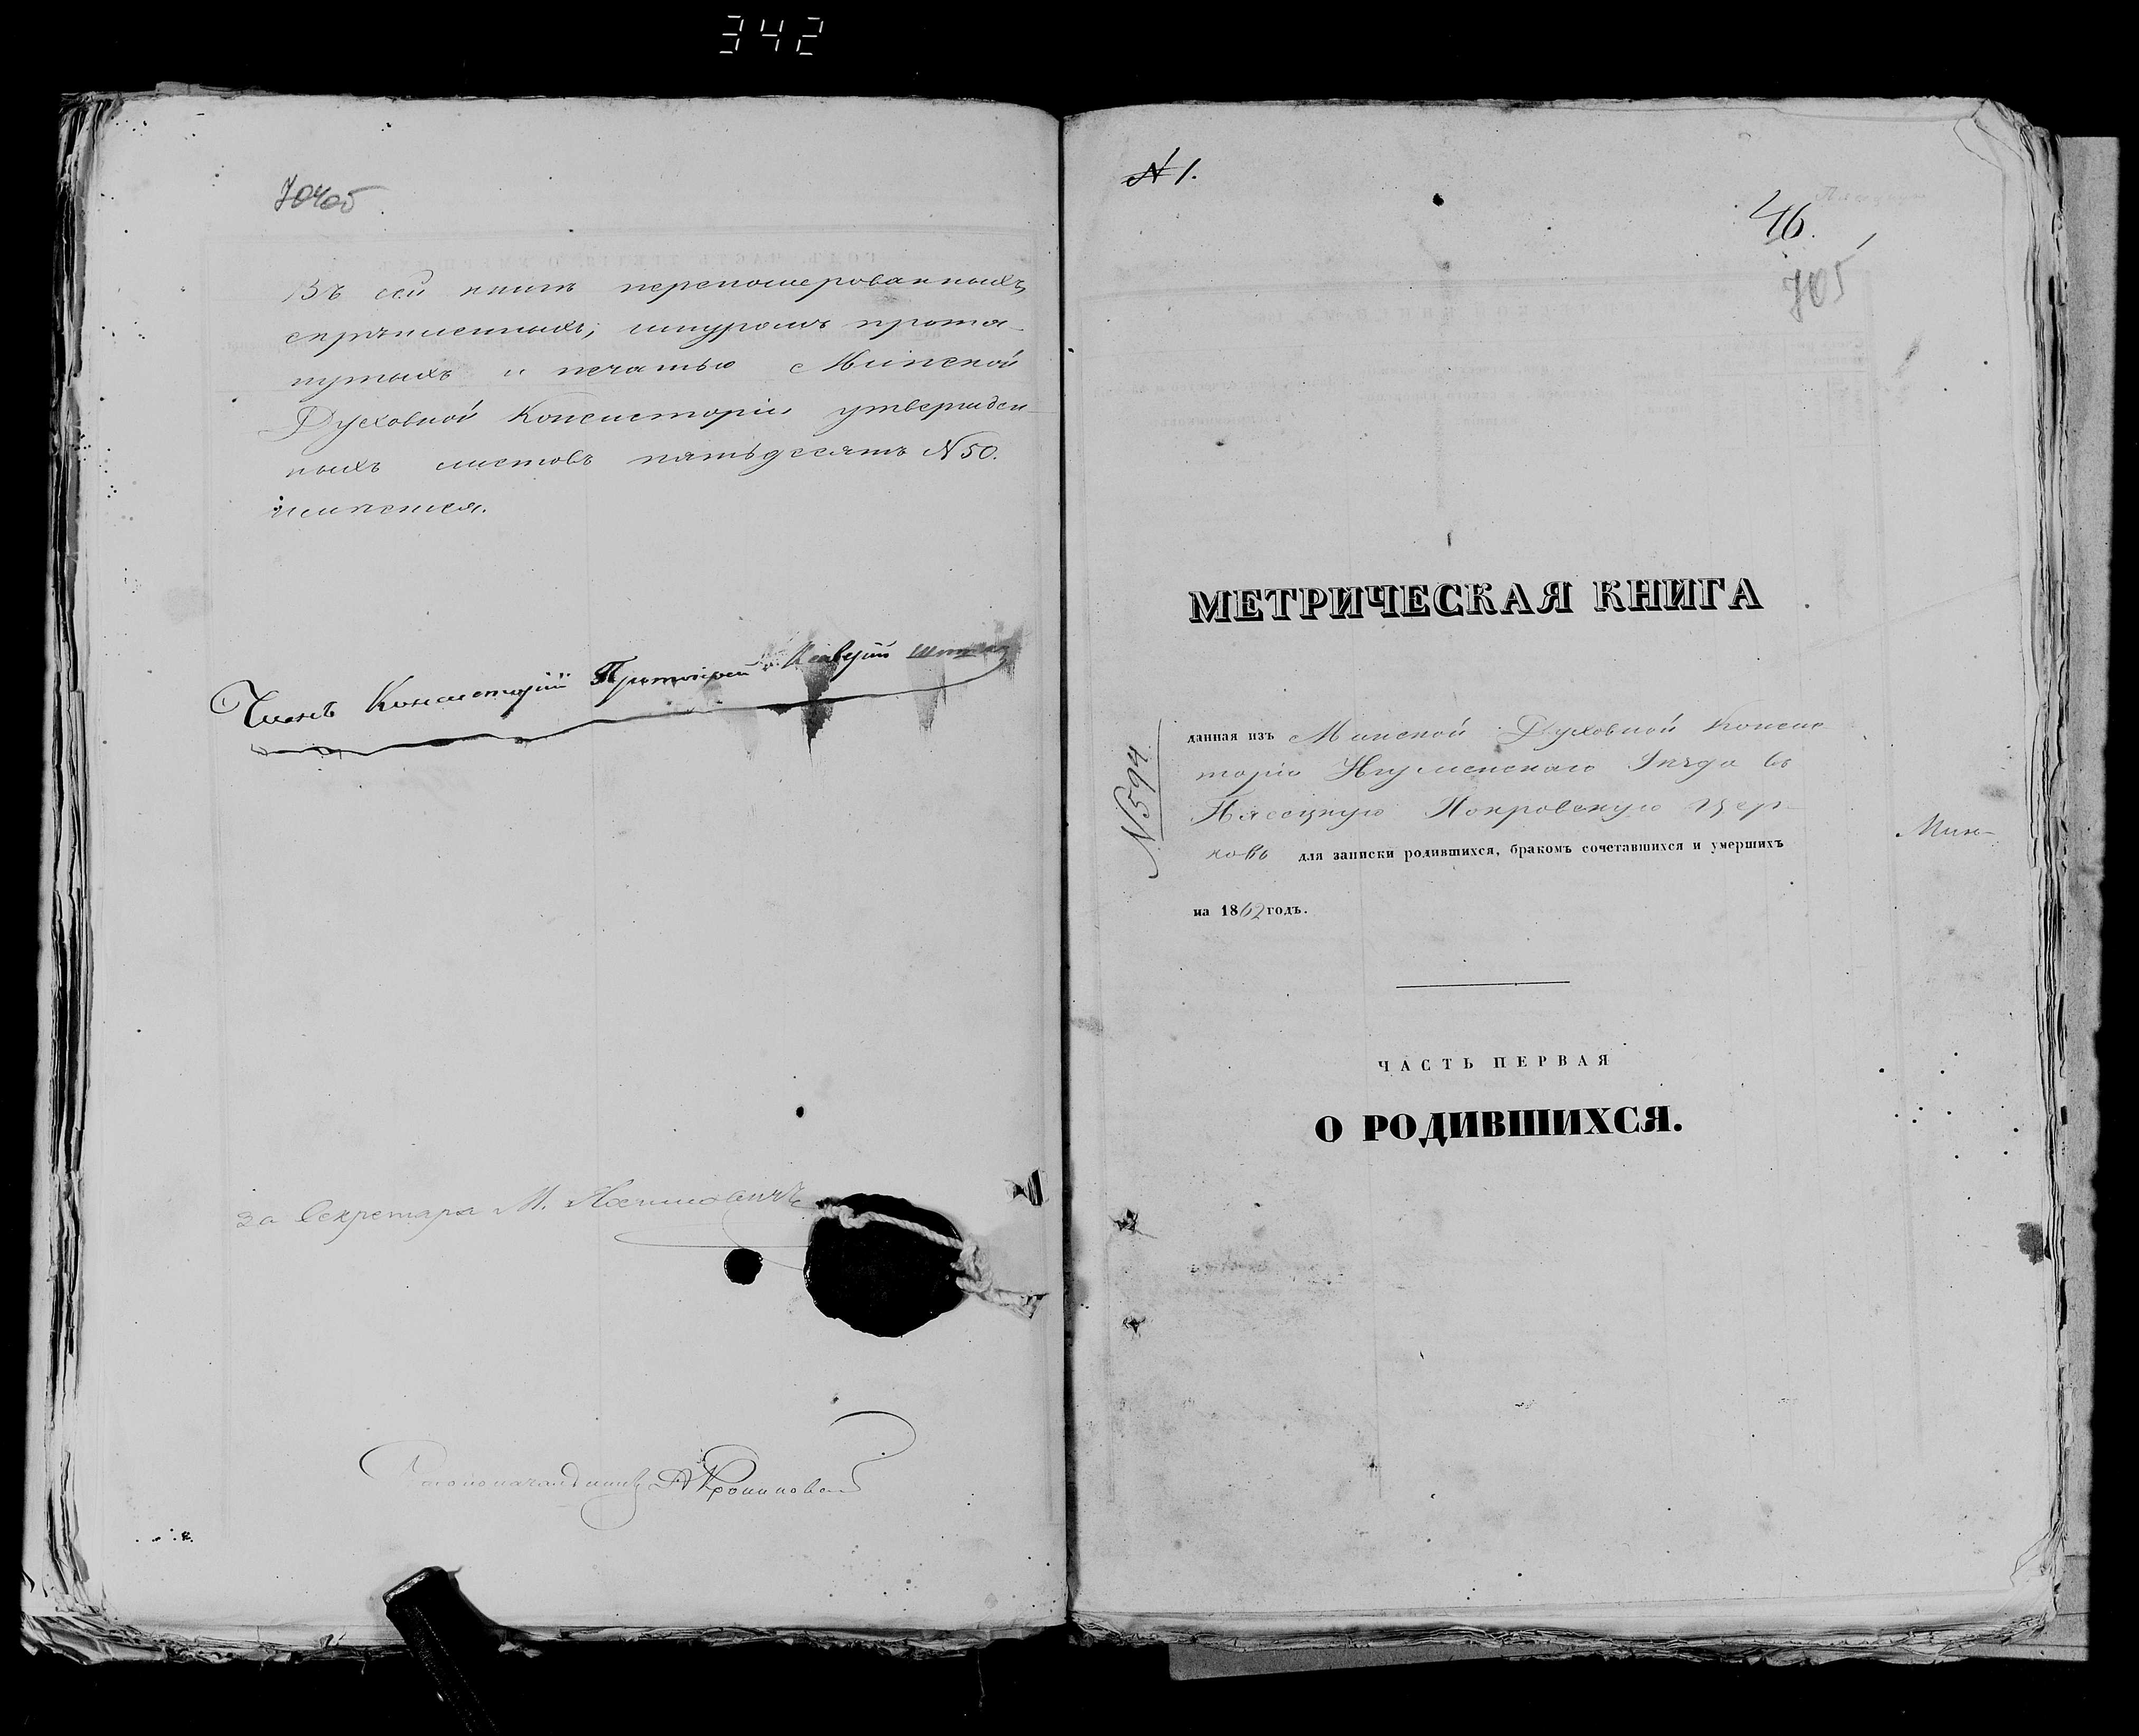 342
704об
Въ сей книгѣ перепомерованныхъ,
скрѣпленныхъ, шнуромъ протя-
нутыхъ и печатью Минской
Духовной Консисторіи утвержден-
ныхъ листовъ пятьдесятъ N50.
имѣется.
Членъ Консисторіи Протоіерей
за Секретаря М.
Столоначальникъ А
N 1.
46.
705
МЕТРИЧЕСКАЯ КНИГА
N594
данная изъ Минской Духовной Консис-
торіи Игуменскаго Уѣзда въ
Пясецкую Покровскую Цер-
ковь для записки родившихся, бракомъ сочетавшихся и умершихъ
Мин-
на 1862 годъ.
ЧАСТЬ ПЕРВАЯ
О РОДИВШИХСЯ.